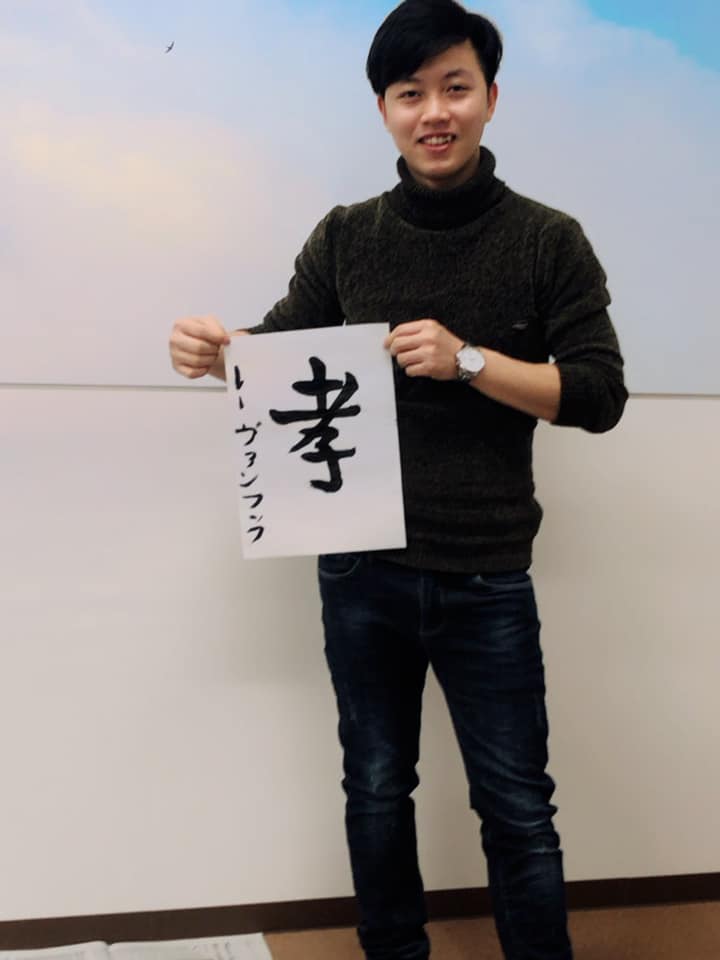 孝
レーヴァンフック